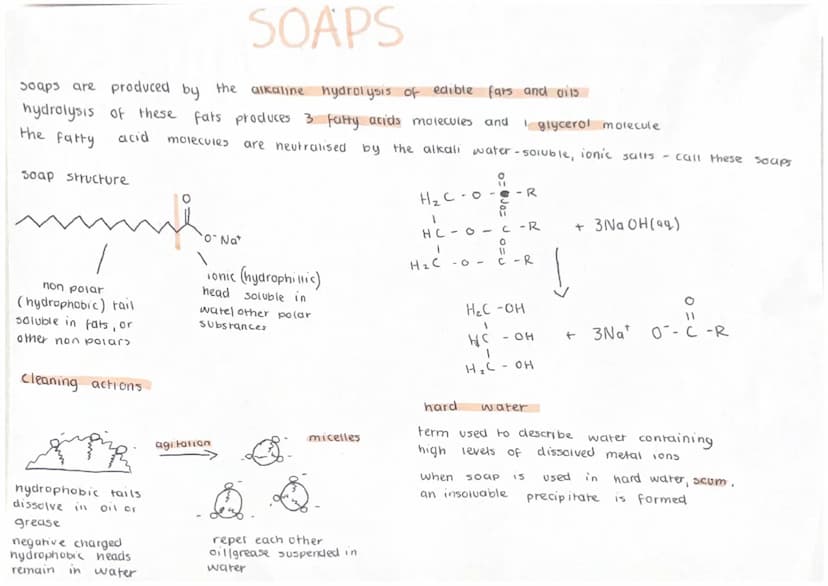 SOAPS
soaps are produced by the alkaline hydrolysis of edible fats and oils
hydrolysis of these fats produces 3 fatty acids molecules and 1 glycerol molecule
the fatty acid molecules are neutralised by the alkali water-soluble, ionic salts - call these soaps
soap structure
O
O⁻ Na⁺
non polar
(hydrophobic) tail
soluble in fats, or
other non polars
ionic (hydrophillic)
head soluble in
water/other polar
substances
O
H₂C - O - C - R
O
HC - O - C - R
O
H₂C - O - C - R
+ 3NaOH(aq)
H₂C - OH
HC - OH
H₂C - OH
+ 3Na⁺
O
O⁻ - C - R
cleaning actions
agitation
micelles
hydrophobic tails
dissolve in oil or
grease
negative charged
hydrophobic heads
remain in water
repel each other
oil/grease suspended in
water
hard water
term used to describe water containing
high levels of dissolved metal ions
when soap is used in hard water, scum,
an insoluable precipitate is formed